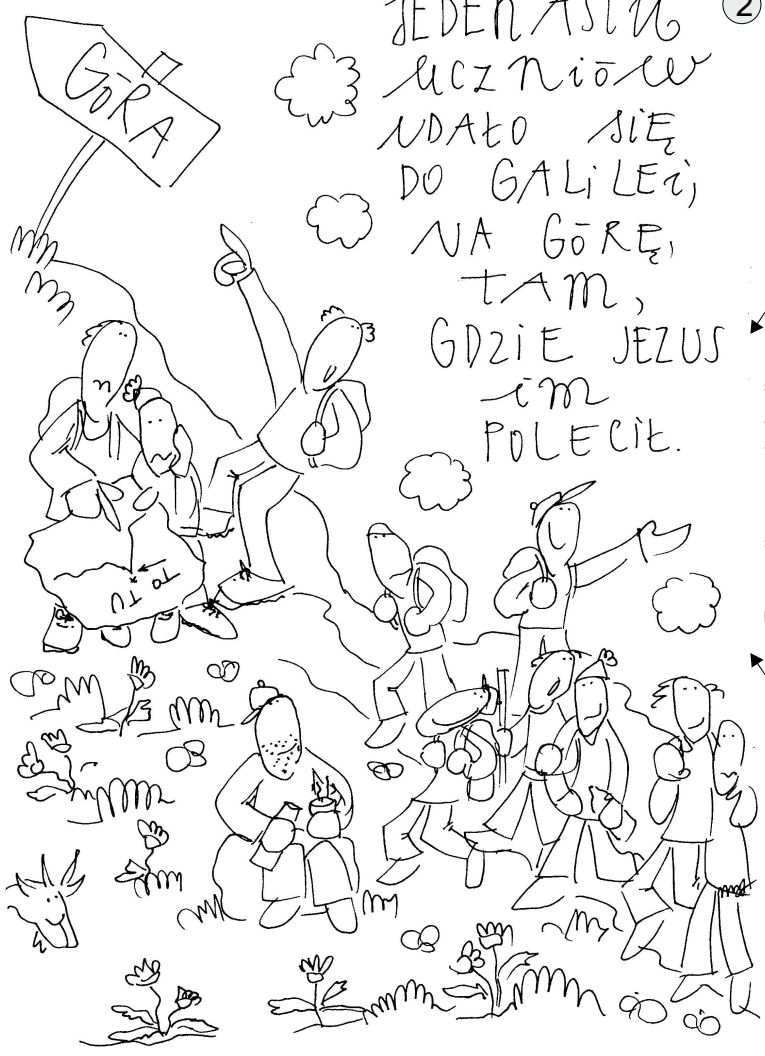 2
JEDENASTU
UCZNIÓW
UDAŁO SIĘ
DO GALILEI,
NA GÓRĘ,
TAM,
GDZIE JEZUS
im
POLECIŁ.
GÓRA
TO TU